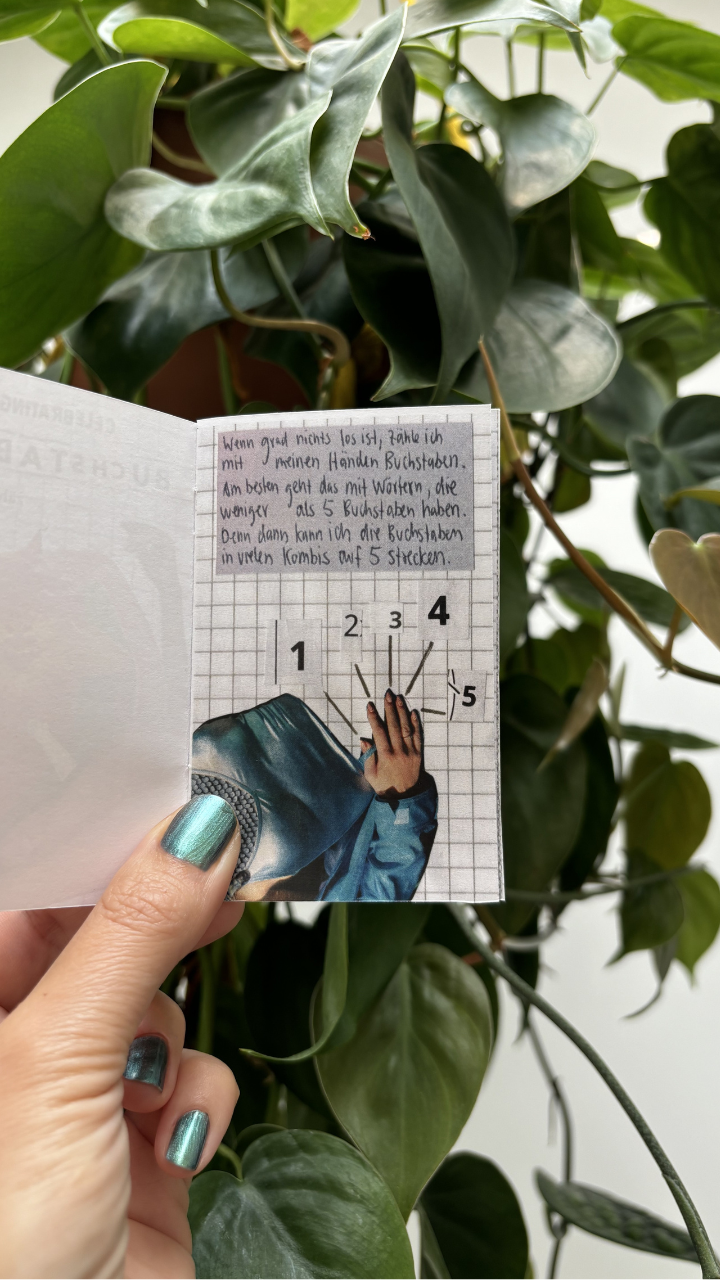 CELEBRATING
BUCHSTAB
Wenn grad nichts los ist, zähle ich
mit meinen Händen Buchstaben.
Am besten geht das mit Wörtern, die
weniger als 5 Buchstaben haben.
Denn dann kann ich die Buchstaben
in vielen Kombis auf 5 strecken.
1
2
3
4
5